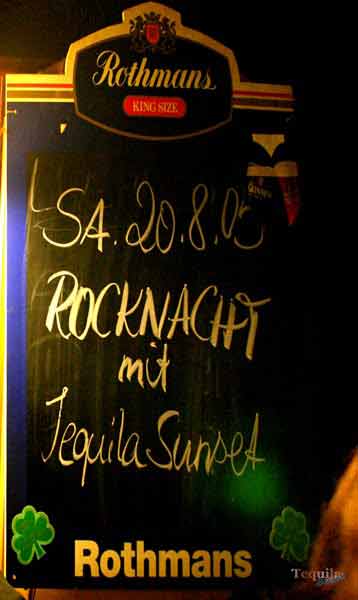 Rothmans
KING SIZE
SA. 20.8.05
ROCKNACHT
mit
Tequila Sunset
Rothmans
Tequila